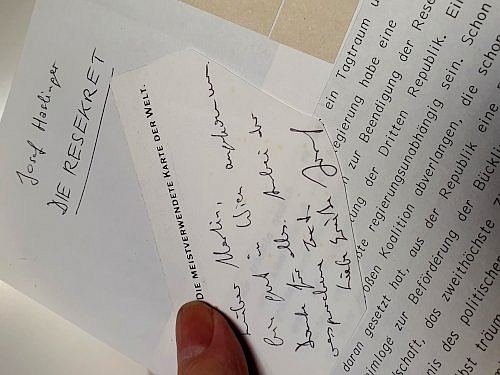 Josef Haslinger
DIE RESEKRET
DIE MEISTVERWENDETE KARTE DER WELT.
lieber Martin,
bin gut in Wien angekommen
Danke für
Liebe Grüße Josef
ein Tagtraum
egierung habe eine
, zur Beendigung der Rese
ung der Dritten Republik. Ein
te regierungsunabhängig sein. Schon
oßen Koalition abverlangen, die schon
daran gesetzt hat, aus der Republik eine
eimloge zur Beförderung der Bücklin
schaft, das zweithöchste Z
nis des politischen
bst träum